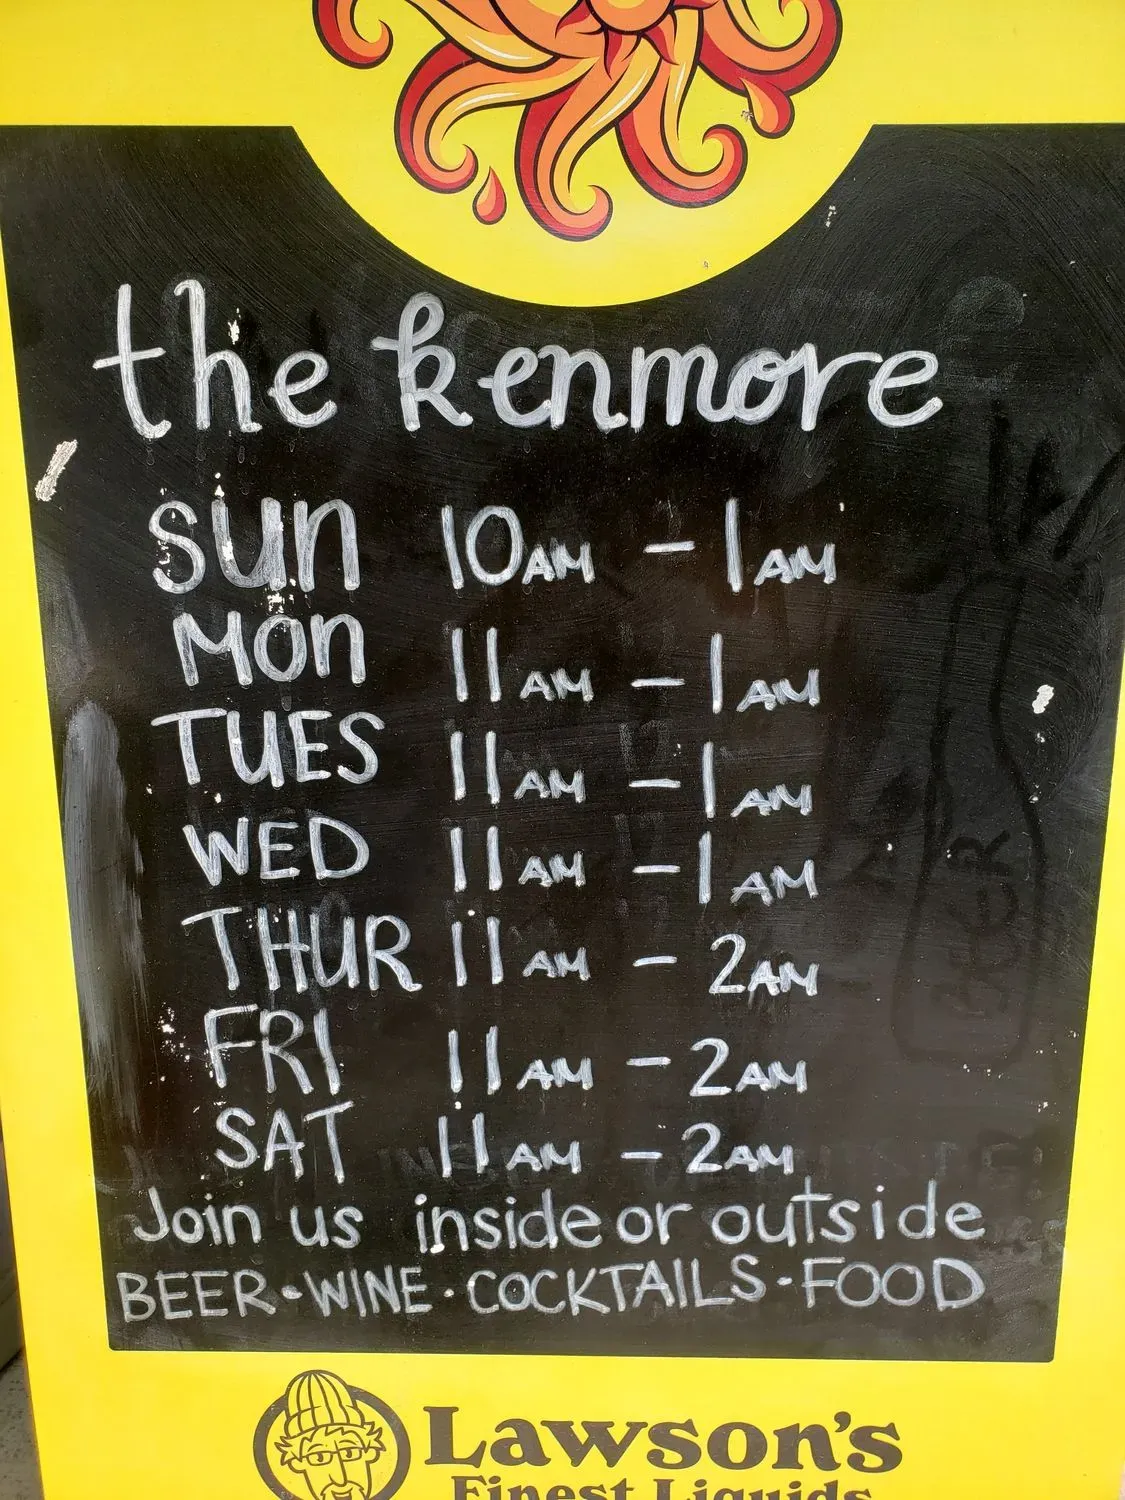 the kenmore
SUN 10AM - 1AM
MON 11AM - 1AM
TUES 11AM - 1AM
WED 11AM - 1AM
THUR 11AM - 2AM
FRI 11AM - 2AM
SAT 11AM - 2AM
Join us inside or outside
BEER · WINE · COCKTAILS · FOOD
Lawson's
Finest Liquids